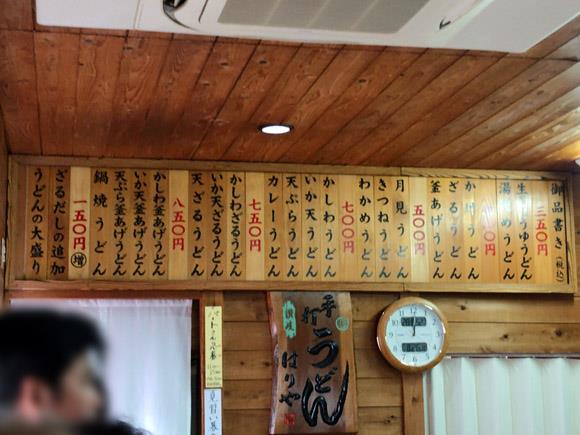 御品書き（税込）
三五〇円
生じょうゆうどん
湯だめうどん
〇〇円
かけうどん
ざるうどん
釜あげうどん
五〇〇円
月見うどん
きつねうどん
わかめうどん
七〇〇円
かしわうどん
いか天うどん
天ぷらうどん
カレーうどん
七五〇円
かしわざるうどん
いか天ざるうどん
天ざるうどん
八五〇円
かしわ釜あげうどん
いか天釜あげうどん
天ぷら釜あげうどん
鍋焼うどん
一五〇円増
ざるだしの追加
うどんの大盛り
手打
うどん
讃岐
はりや